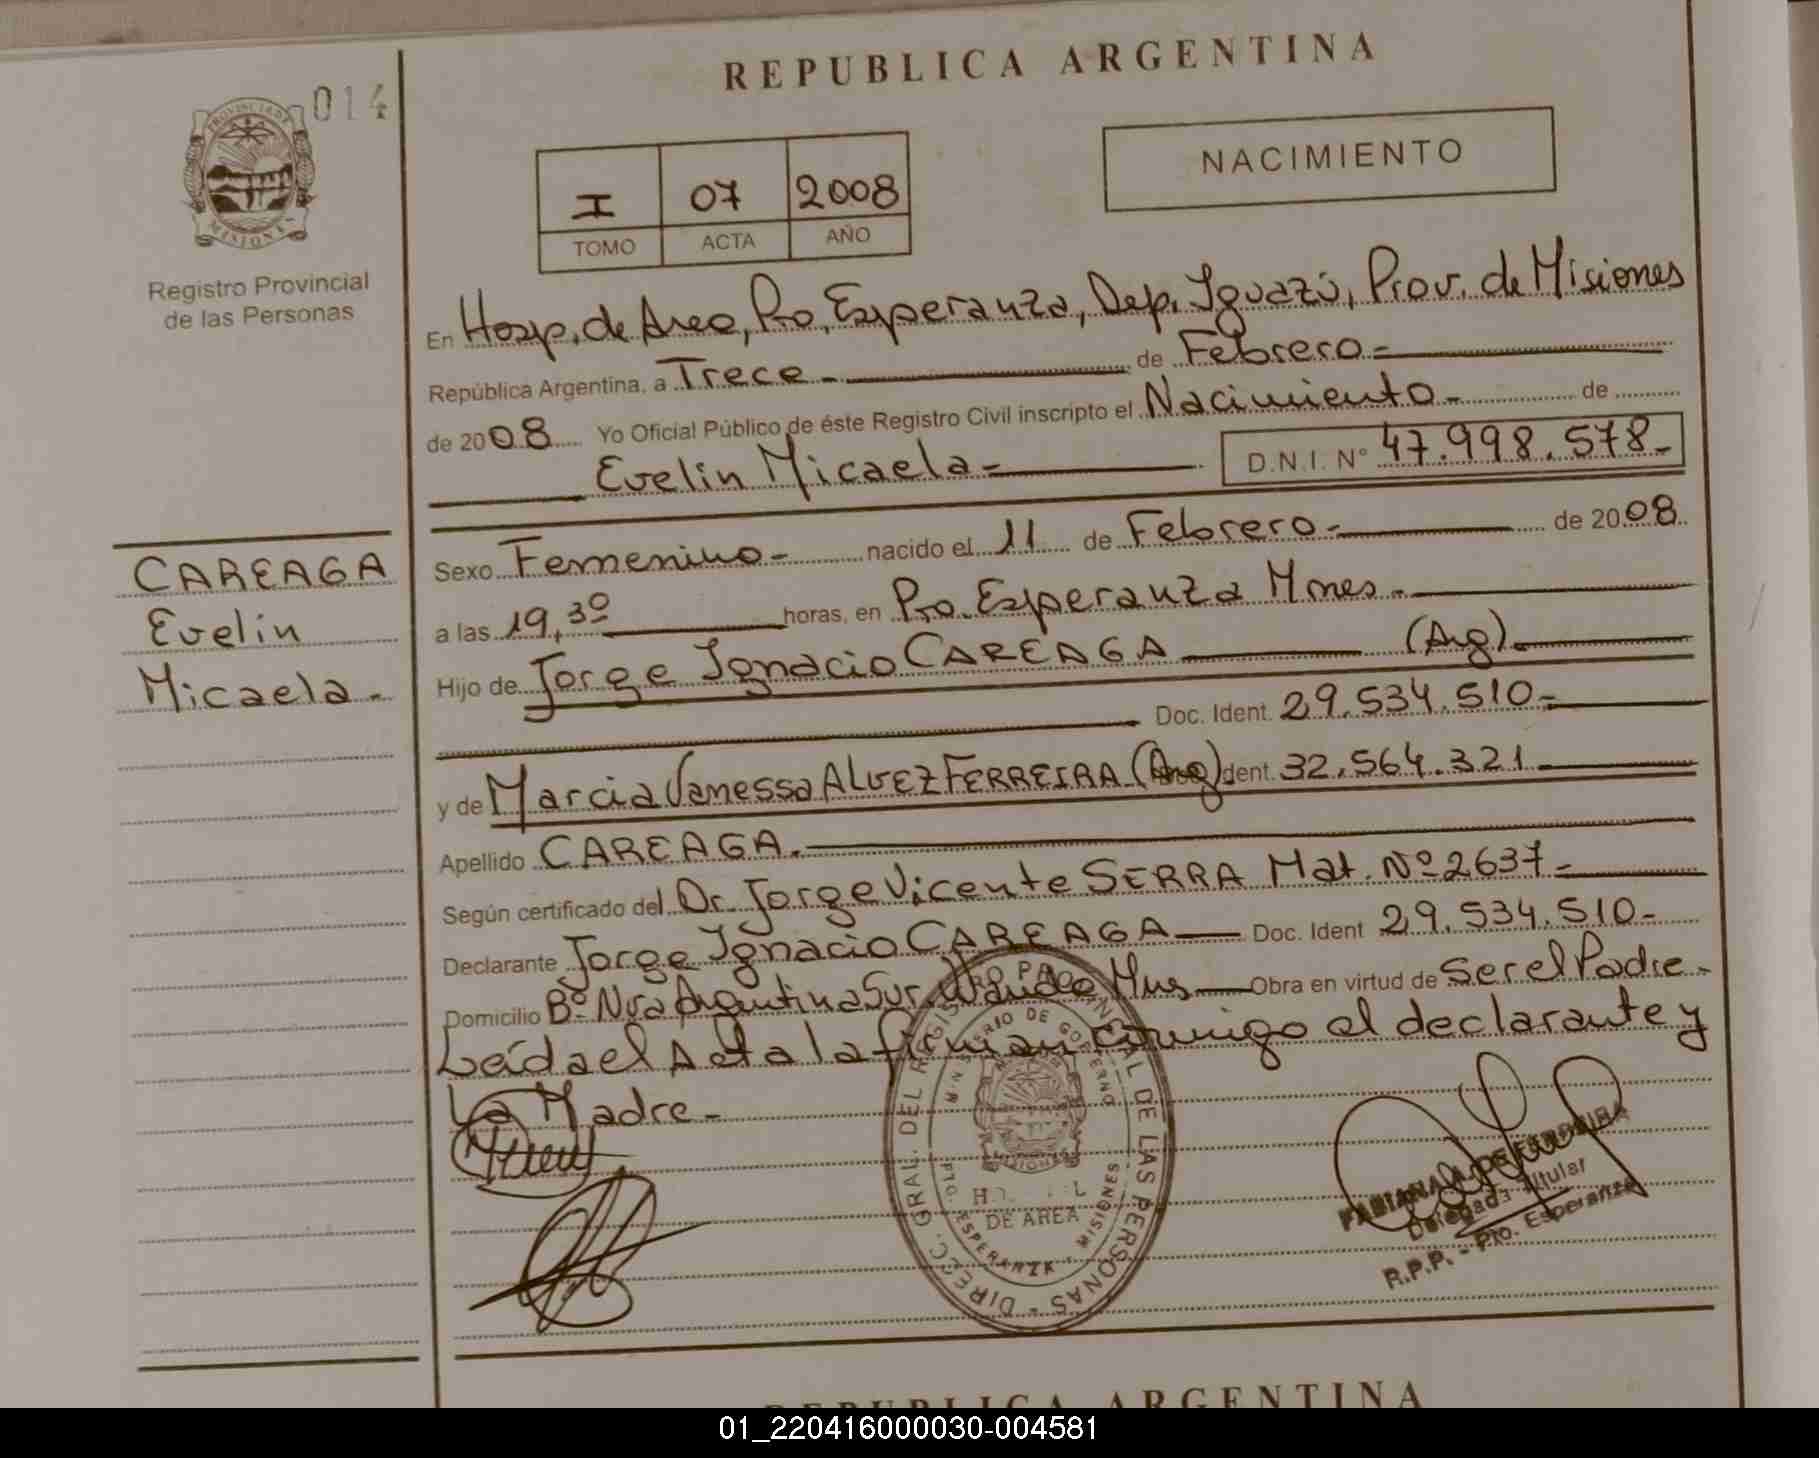 014
PROVINCIA DE
MISIONES
Registro Provincial
de las Personas
CAREAGA
Evelin
Micaela-
REPUBLICA ARGENTINA
I 07 2008
TOMO ACTA AÑO
NACIMIENTO
En Hosp. de Area, Pto. Esperanza, Dep. Iguazú, Prov. de Misiones
República Argentina, a Trece - de Febrero -
de 2008 Yo Oficial Público de éste Registro Civil inscripto el Nacimiento - de
Evelin Micaela - D.N.I. Nº 47.998.578-
Sexo Femenino - nacido el 11 de Febrero - de 2008
a las 19,30 horas, en Pto. Esperanza Mnes.
Hijo de Jorge Ignacio CAREAGA (Arg).
Doc. Ident. 29.534.510-
y de Marcia Vanessa ALVEZ FERREIRA (Arg) Ident. 32.564.321
Apellido CAREAGA.
Según certificado del Dr. Jorge Vicente SERRA Mat. Nº 2637-
Declarante Jorge Ignacio CAREAGA Doc. Ident 29.534.510-
Domicilio Bº Nva Argentina Sur Wanda Mns Obra en virtud de Ser el Padre-
Leída el Acta la firman conmigo el declarante y
La Madre-
DIRECC. GRAL. DEL REGISTRO PROVINCIAL DE LAS PERSONAS
MINISTERIO DE GOBIERNO
MISIONES
DE AREA
PTO. ESPERANZA - MISIONES
FABIANA A. DE FERREIRA
Delegada Titular
R.P.P. - Pto. Esperanza
REPUBLICA ARGENTINA
01_220416000030-004581